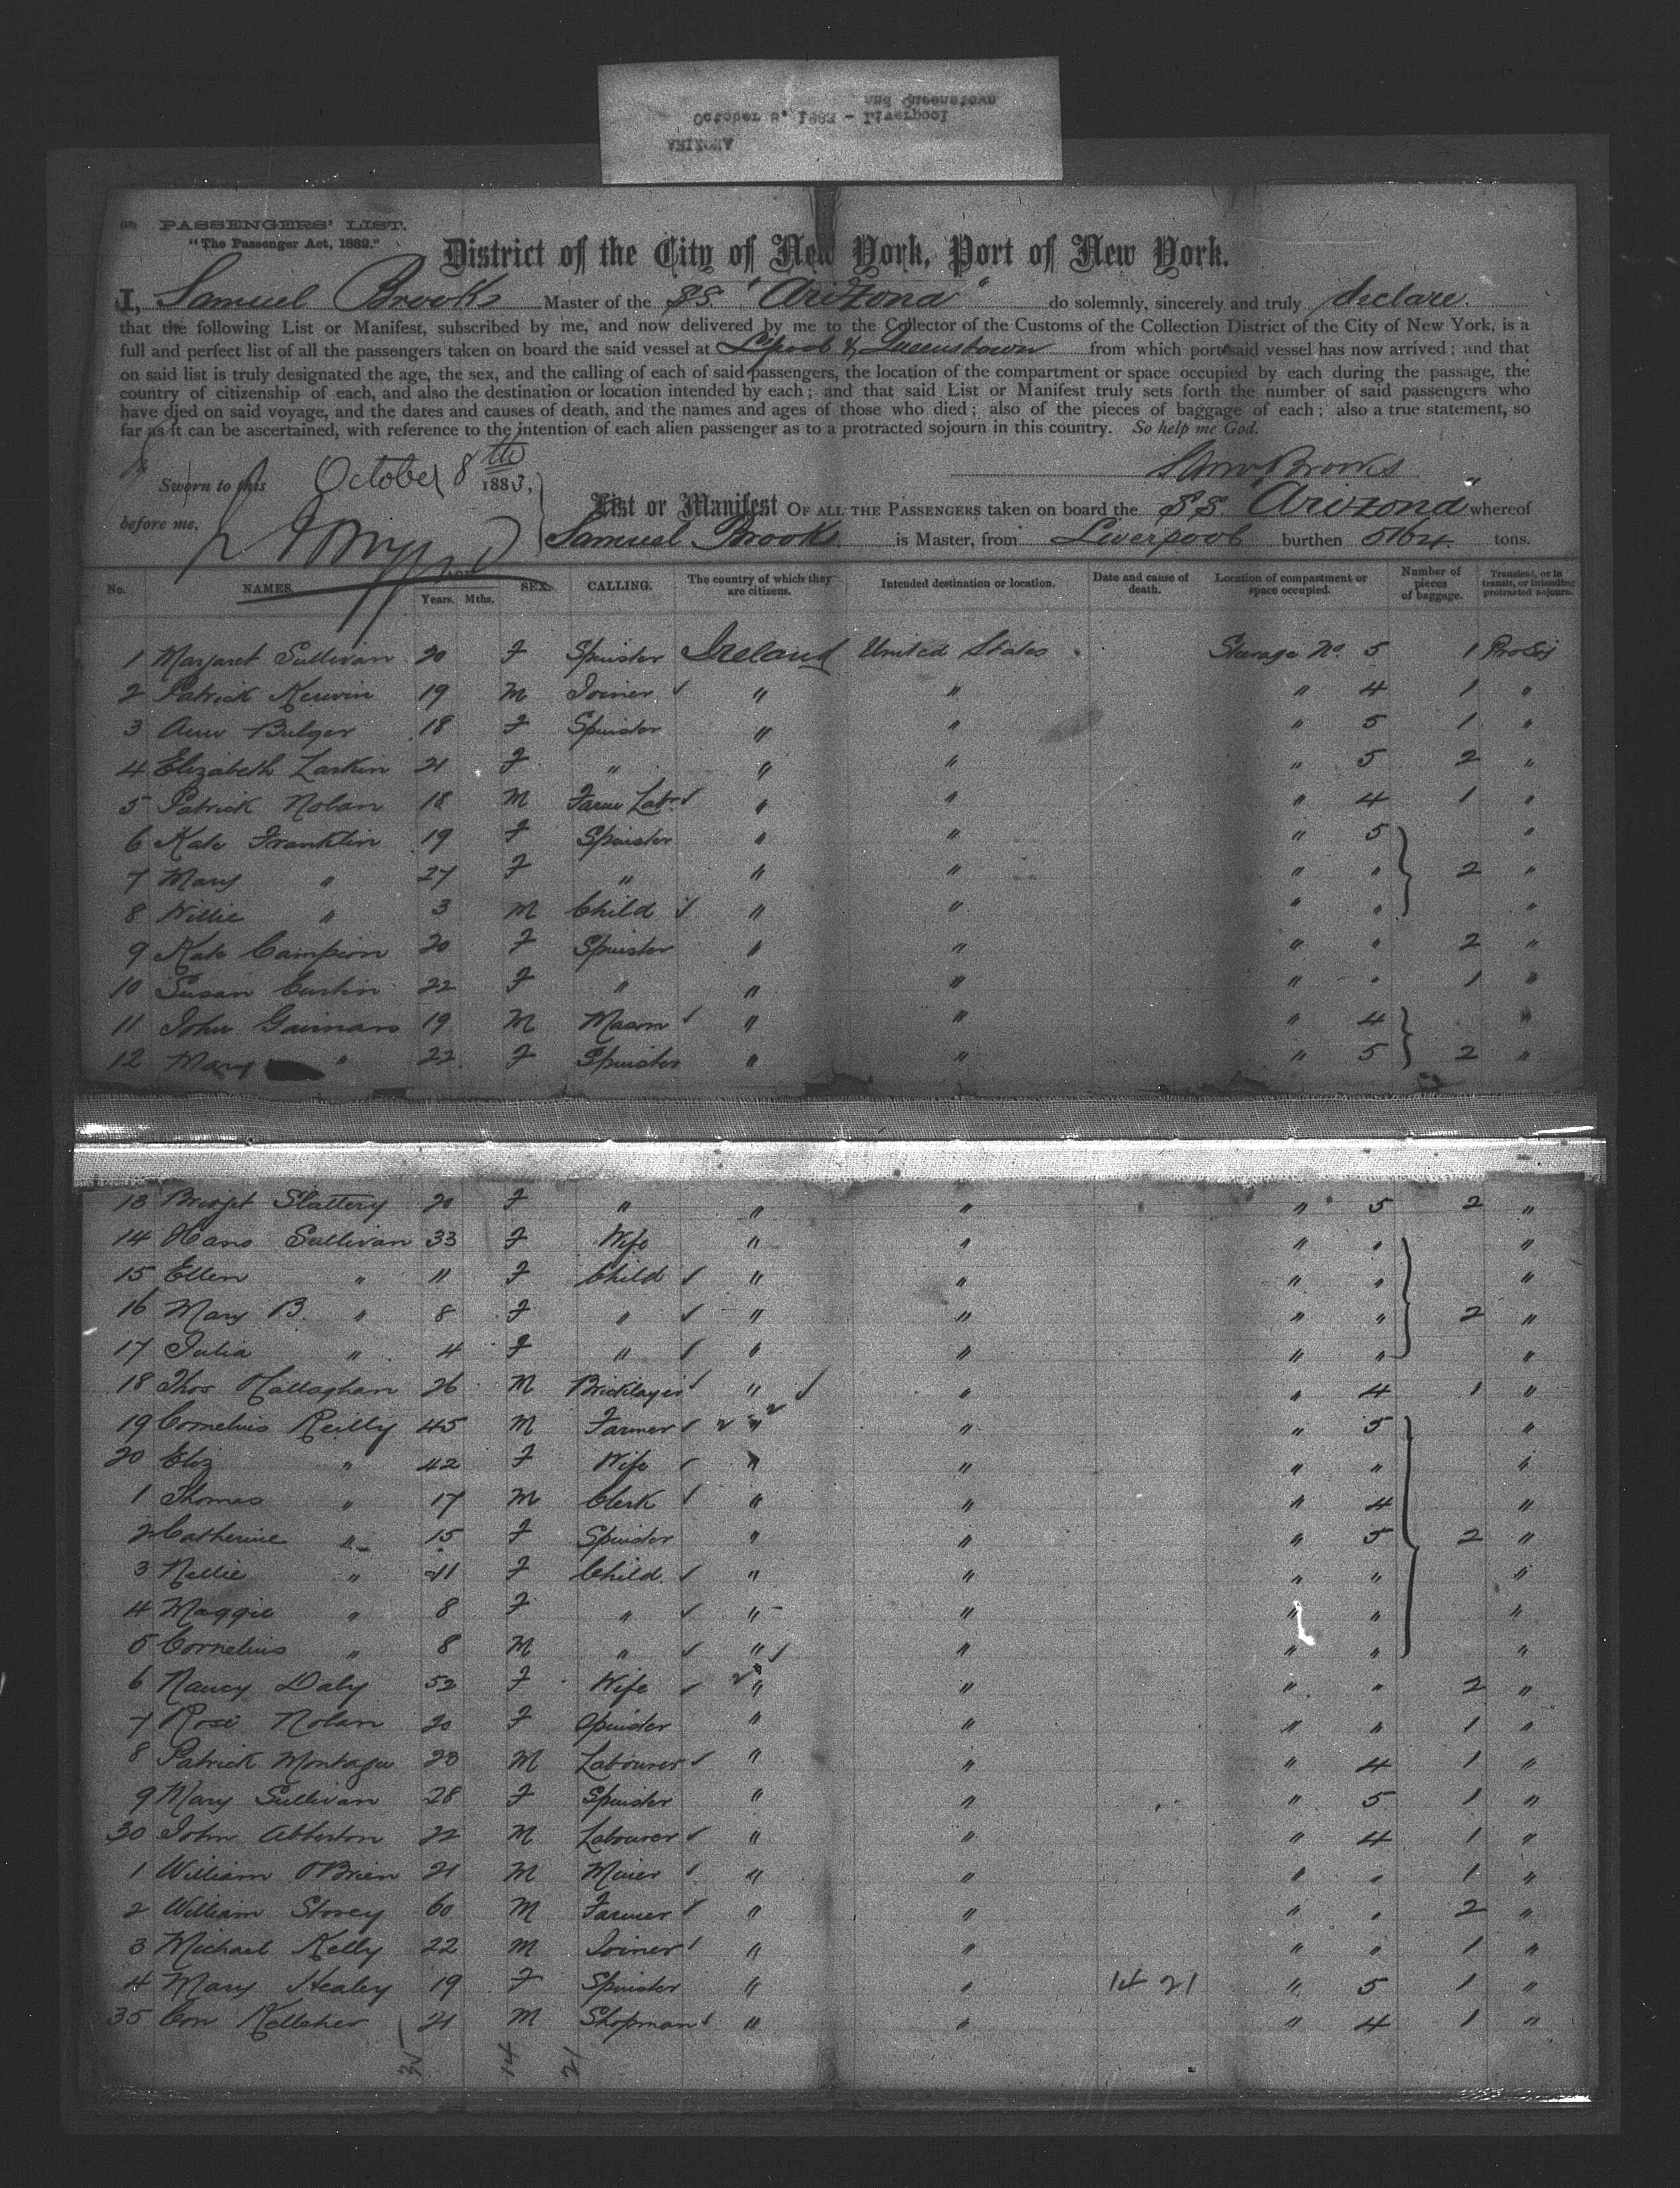 and Queenstown
October 8, 1883 - Liverpool
ARIZONA
PASSENGERS' LIST.
"The Passenger Act, 1882."
District of the City of New York, Port of New York.
I, Samuel Brooks Master of the S.S. "Arizona" do solemnly, sincerely and truly declare
that the following List or Manifest, subscribed by me, and now delivered by me to the Collector of the Customs of the Collection District of the City of New York, is a
full and perfect list of all the passengers taken on board the said vessel at L'pool & Queenstown from which port said vessel has now arrived; and that
on said list is truly designated the age, the sex, and the calling of each of said passengers, the location of the compartment or space occupied by each during the passage, the
country of citizenship of each, and also the destination or location intended by each; and that said List or Manifest truly sets forth the number of said passengers who
have died on said voyage, and the dates and causes of death, and the names and ages of those who died; also of the pieces of baggage of each; also a true statement, so
far as it can be ascertained, with reference to the intention of each alien passenger as to a protracted sojourn in this country. So help me God.
Sworn to this October 8th 1883,
Saml Brooks
before me,
List or Manifest OF ALL THE PASSENGERS taken on board the S.S. "Arizona" whereof
Samuel Brooks is Master, from Liverpool burthen 5164 tons.
No. NAMES. Years. Mths. SEX. CALLING. The country of which they are citizens. Intended destination or location. Date and cause of death. Location of compartment or space occupied. Number of pieces of baggage. Transient, or in transit, or intending protracted sojourn.
1 Margaret Sullivan 20 F Spinster Ireland United States Steerage No. 5 1 Pro Soj
2 Patrick Kerwin 19 M Joiner " " " 4 1 "
3 Ann Bulger 18 F Spinster " " " 5 1 "
4 Elizabeth Larkin 21 F " " " " 5 2 "
5 Patrick Nolan 18 M Farm Labr " " " 4 1 "
6 Kate Franklin 19 F Spinster " " " 5 "
7 Mary " 27 F " " " " " 2 "
8 Willie " 3 M Child " " " " "
9 Kate Campion 20 F Spinster " " " " 2 "
10 Susan Curtin 22 F " " " " " 1 "
11 John 19 M Mason " " " 4 "
12 Mary " 22 F Spinster " " " 5 2 "
13 Bridget Slattery 20 F " " " " 5 2 "
14 Sullivan 33 F Wife " " " " "
15 Ellen " 11 F Child " " " " "
16 Mary B. " 8 F " " " " " 2 "
17 Julia " 4 F " " " " " "
18 Thos O'Callaghan 26 M Bricklayer " " " 4 1 "
19 Cornelius Reilly 45 M Farmer " " " 5 "
20 Eliz " 42 F Wife " " " " "
1 Thomas " 17 M Clerk " " " 4 "
2 Catherine " 15 F Spinster " " " 5 2 "
3 Nellie " 11 F Child " " " " "
4 Maggie " 8 F " " " " " "
5 Cornelius " 8 M " " " " " "
6 Nancy Daly 52 F Wife " " " " 2 "
7 Rose Nolan 20 F Spinster " " " " 1 "
8 Patrick Montague 23 M Labourer " " " 4 1 "
9 Mary Sullivan 28 F Spinster " " " 5 1 "
30 John Abberton 22 M Labourer " " " 4 1 "
1 William O'Brien 21 M Miner " " " " 1 "
2 William Storey 60 M Farmer " " " " 2 "
3 Michael Kelly 22 M Joiner " " " " 1 "
4 Mary Healey 19 F Spinster " " 14 21 " 5 1 "
35 Con Kelleher 21 M Shopman " " " 4 1 "
35 14 21